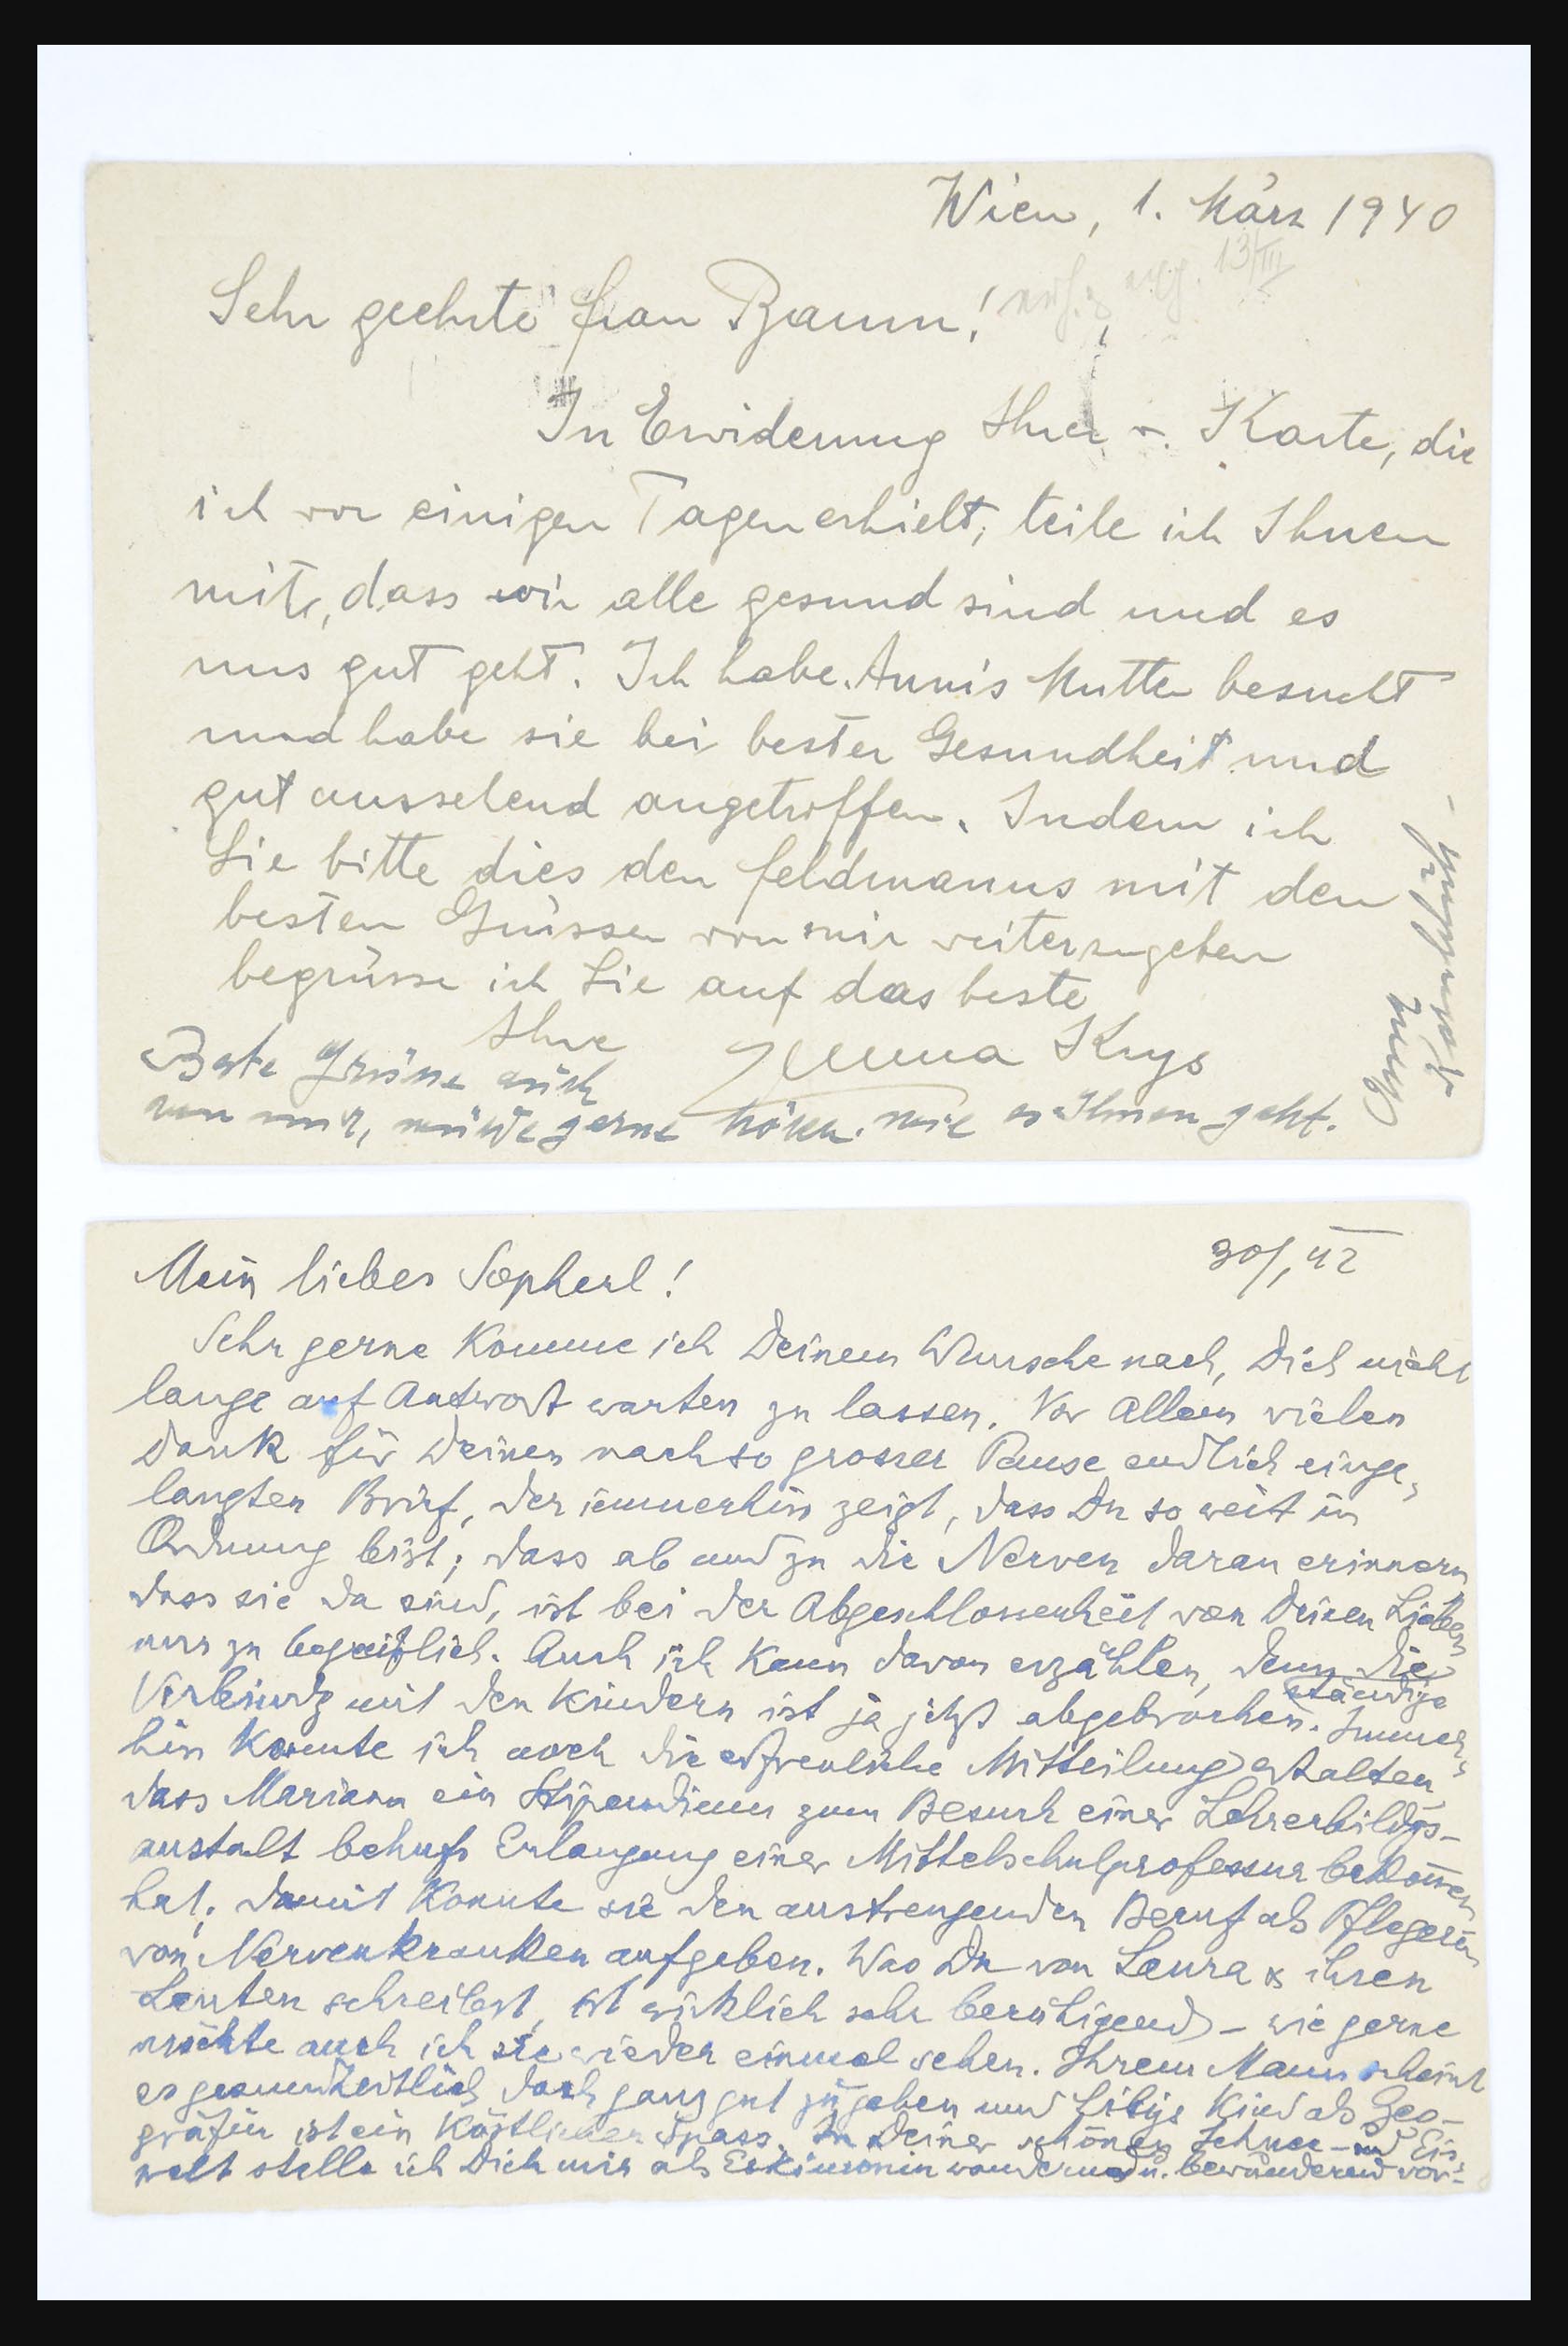 Wien, 1. März 1940
13/III
Sehr geehrte Frau Baum!
In Erwiderung Ihrer w. Karte, die
ich vor einigen Tagen erhielt, teile ich Ihnen
mit, dass wir alle gesund sind und es
uns gut geht. Ich habe Annis Mutter besucht
und habe sie bei bester Gesundheit und
gut aussehend angetroffen. Indem ich
Sie bitte dies den Feldmanns mit den
besten Grüssen von mir weiterzugeben
begrüsse ich Sie auf das beste
Ihre
Emma Krys
Beste Grüsse auch
von mir, würde gerne hören wie es Ihnen geht.
30/, 42
Mein liebes Sopherl!
Sehr gerne komme ich Deinem Wunsche nach, Dich nicht
lange auf Antwort warten zu lassen. Vor Allem vielen
Dank für Deinen nach so grosser Pause endlich einge-
langten Brief, der immerhin zeigt, dass Du so weit in
Ordnung bist; dass ab und zu die Nerven daran erinnern
dass sie da sind, ist bei der Abgeschlossenheit von Deinen Lieben
nur zu begreiflich. Auch ich kann davon erzählen, denn die
ständige
Verbindg mit den Kindern ist ja jetzt abgebrochen. Immer-
hin konnte ich noch die erfreuliche Mitteilung erhalten,
dass Mariann ein Stipendium zum Besuch einer Lehrerbildgs-
anstalt behufs Erlangung einer Mittelschulprofessur bekom̄en
hat; damit konnte sie den anstrengenden Beruf als Pflegerin
von Nervenkranken aufgeben. Was Du von Laura & ihren
Leuten schreibst, ist wirklich sehr beruhigend – wie gerne
möchte auch ich sie wieder einmal sehen. Ihrem Mann scheint
es gesundheitlich doch ganz gut zu gehen und Lilys Kind als Geo-
gräfin ist ein köstlicher Spass. In Deiner schönen Schnee- und Eis-
welt stelle ich Dich mir als Eskimonin wandernd u. bewundernd vor.-